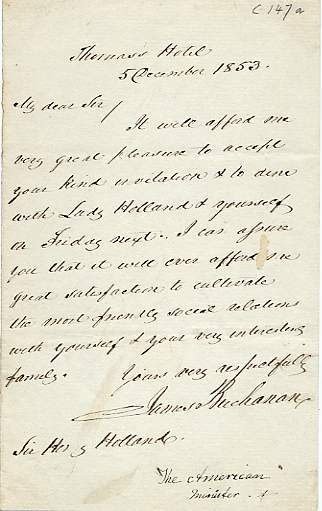 C 147a
Thomas's Hotel
5 December 1853.
My dear Sir/
It will afford me
very great pleasure to accept
your kind invitation & to dine
with Lady Holland & yourself
on Friday next. I can assure
you that it will ever afford me
great satisfaction to cultivate
the most friendly social relations
with yourself & your very interesting
family.
Yours very respectfully
James Buchanan
Sir Hen y Holland.
The American
Minister